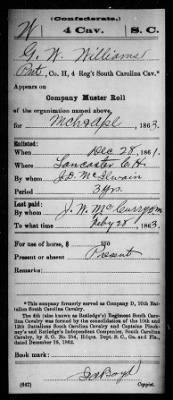 (Confederate.)
W 4 Cav. S.C.
G. W. Williams
Pvt, Co. H, 4 Reg't South Carolina Cav.*
Appears on
Company Muster Roll
of the organization named above,
for Mch & Apl, 1863.
Enlisted:
When Dec 28, 1861.
Where Lancaster C.H.
By whom J.D. McIlwain
Period 3 yrs.
Last paid:
By whom J. N. McCurry
To what time Feby 28, 1863.
For use of horse, $
Present or absent Present
Remarks:
*This company formerly served as Company D, 10th Battalion South Carolina Cavalry.
The 4th (also known as Rutledge's) Regiment South Carolina Cavalry was formed by the consolidation of the 10th and 12th Battalions South Carolina Cavalry and Captains Pinckney's and Rutledge's Independent Companies, South Carolina Cavalry, by S. O. No. 254, Hdqrs. Dept. S. C., Ga. and Fla., dated December 16, 1862.
Book mark:
(642) Copyist.